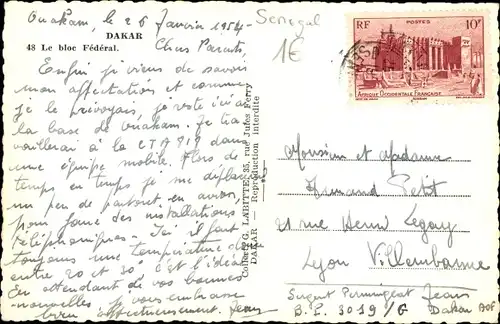 Ouakam, le 26 Janvier 1954
DAKAR
48 Le bloc Fédéral.
Senegal
1€
Chers Parents,
Enfin je viens de savoir
mon affectation et comme
je le prévoyais, je reste ici à
la base de Ouakam. Je tra
vaillerai à la
une équipe mobile. Alors de
temps en temps je me déplacerai
un peu de partout en avion,
pour faire des installations
téléphoniques. Ici il fait
toujours une température
entre 20 et 30° c'est l'idéal
En attendant de vos bonnes
nouvelles, je vous embrasse
bien affectueusement. Jean
Collection G. LABITTE, 35, rue Jules Ferry
DAKAR — Reproduction interdite
RF POSTES 10F
AFRIQUE OCCIDENTALE FRANÇAISE
Monsieur et Madame
Armand Petit
21 rue Henri Legay
Lyon Villeurbanne
Sergent Jean
B.P. 3019/G Dakar AOF